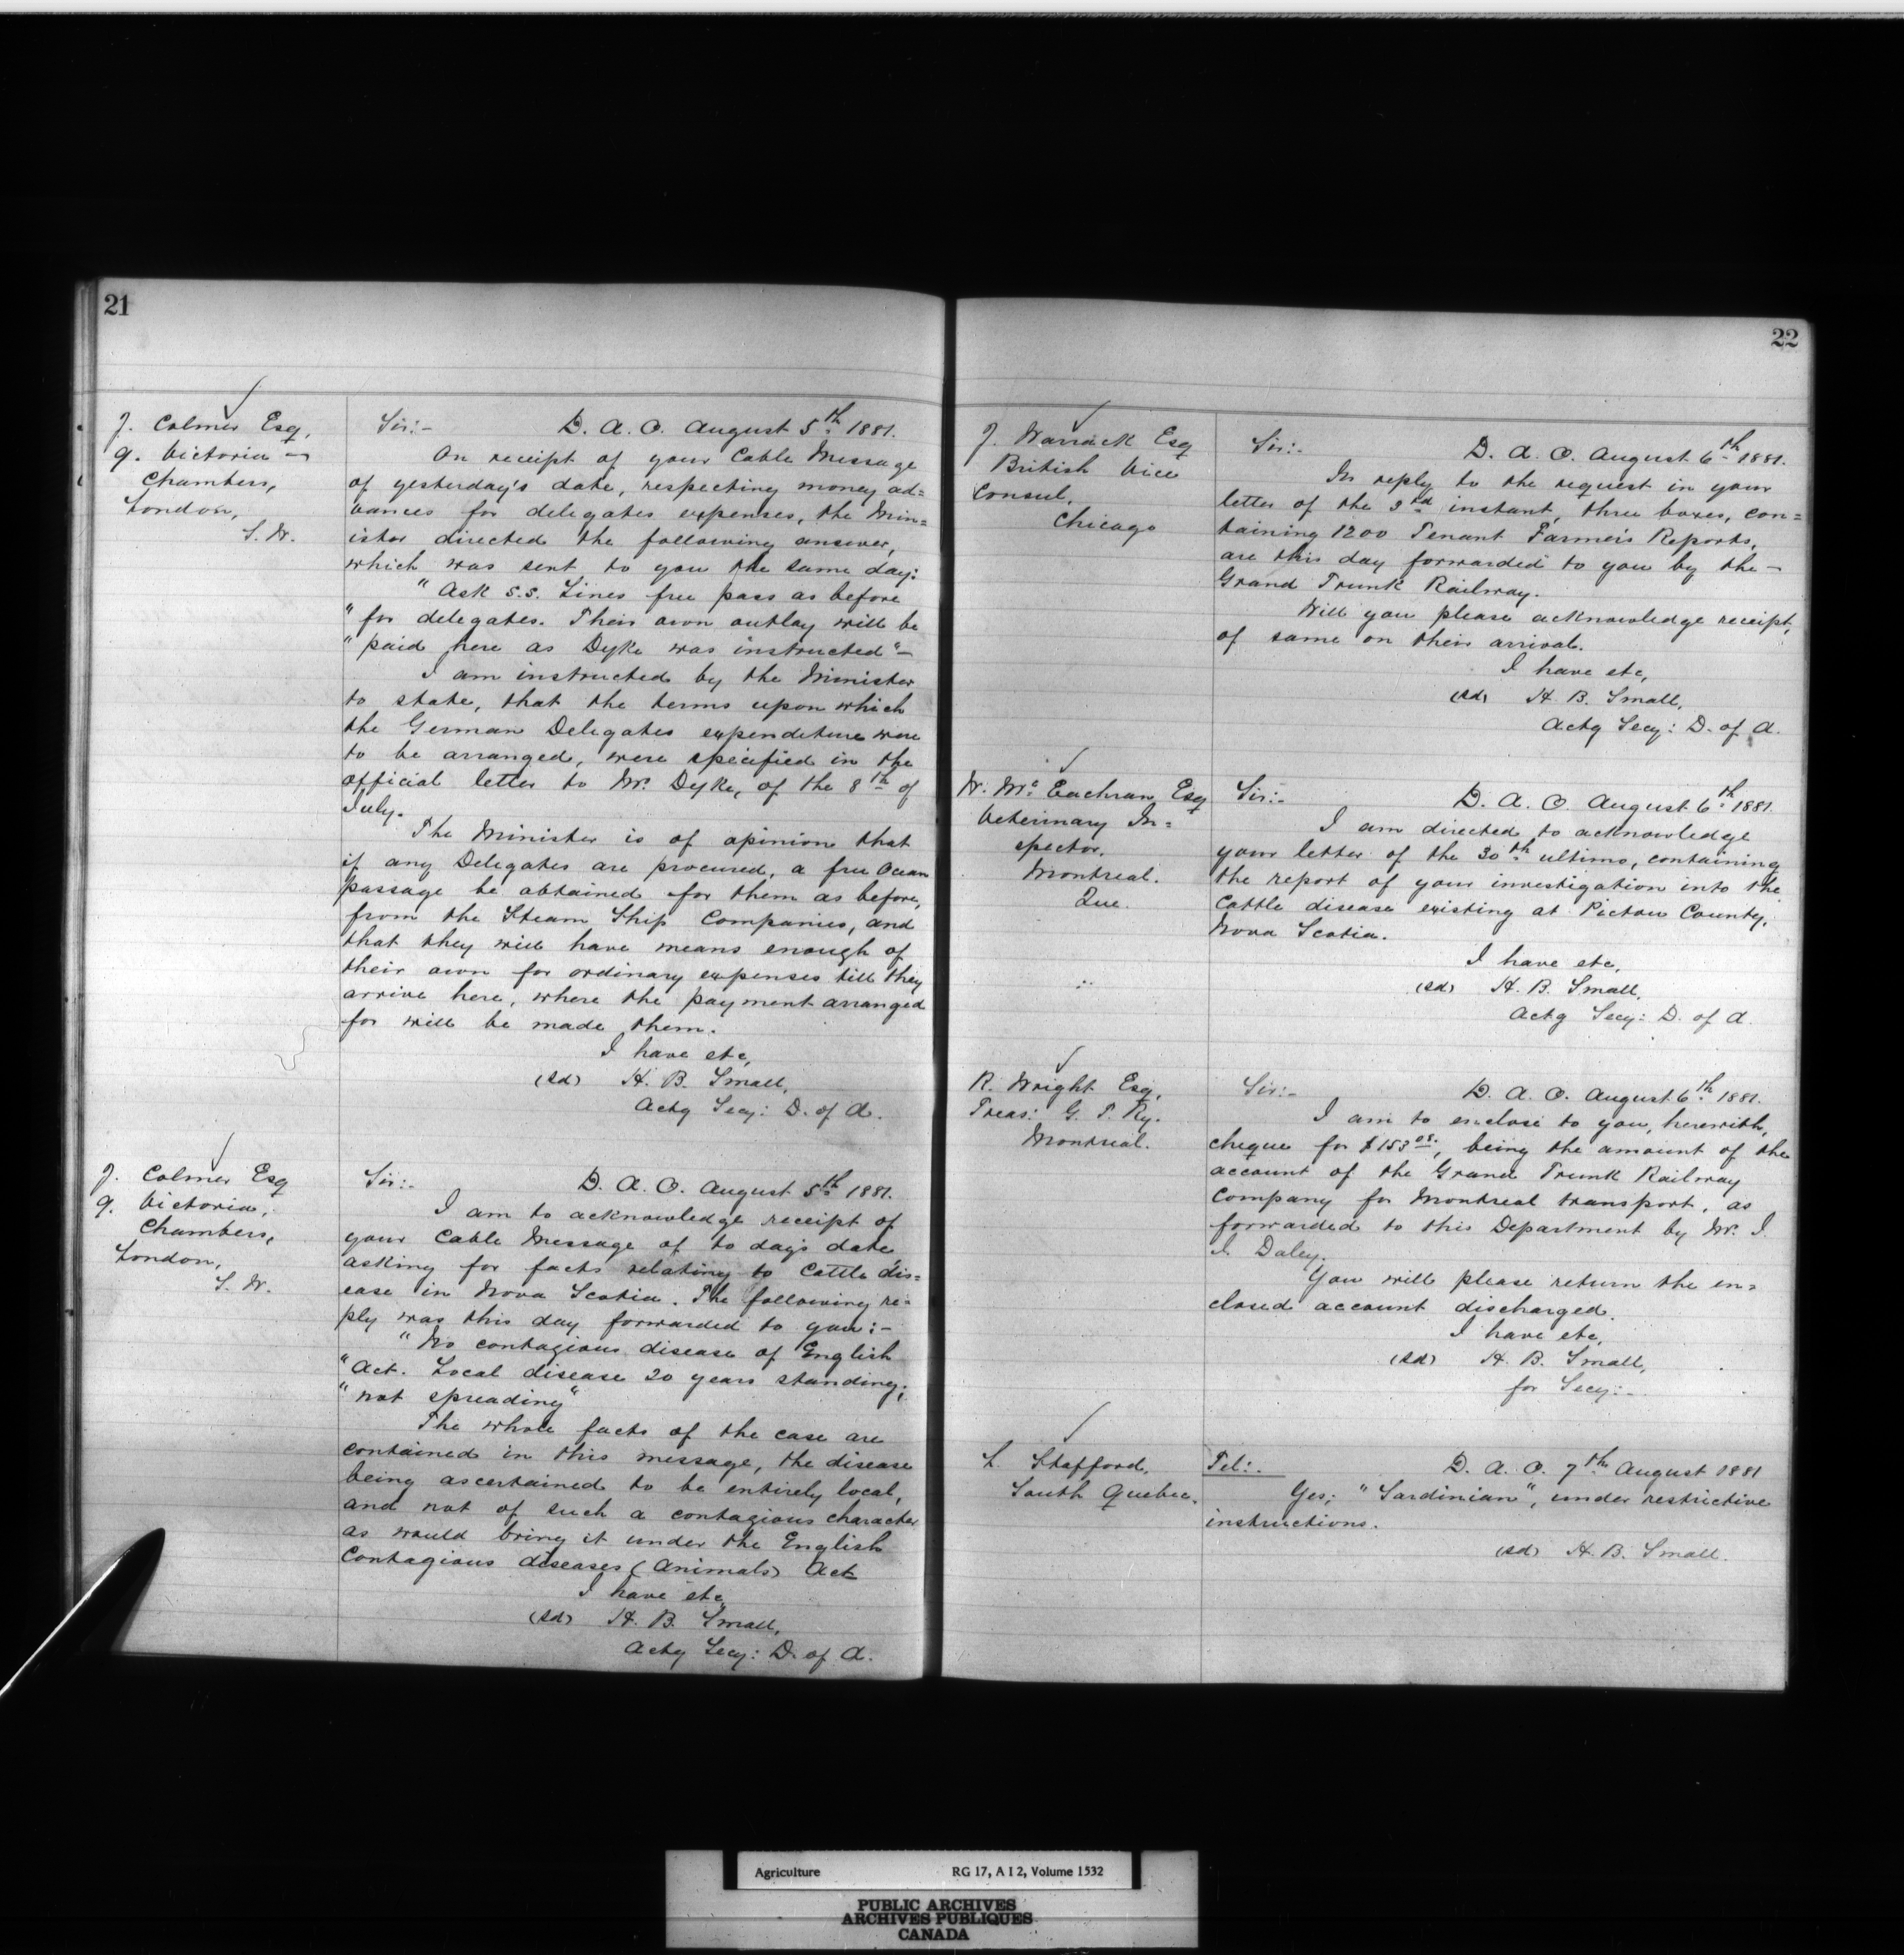 21
J. Colmer Esq,
9. Victoria -
Chambers,
London,
S. W.
Sir:- D. A. O. August 5th 1881.
On receipt of your Cable Message
of yesterday's date, respecting money ad=
vances for delegates expenses, the Min=
ister directed the following answer,
which was sent to you the same day:
"Ask S.S. Lines free pass as before
"for delegates. Their own outlay will be
"paid here as Dyke was instructed"-
I am instructed by the Minister
to state, that the terms upon which
the German Delegates expenditure were
to be arranged, were specified in the
official letter to Mr. Dyke, of the 8th of
July.
The Minister is of opinion that
if any Delegates are procured, a free Ocean
passage be obtained for them as before,
from the Steam Ship Companies, and
that they will have means enough of
their own for ordinary expenses till they
arrive here, where the payment arranged
for will be made them.
I have etc,
(sd) H. B. Small,
Actg Secy: D. of A.
J. Colmer Esq
9. Victoria,
Chambers,
London,
S. W.
Sir:- D. A. O. August 5th 1881.
I am to acknowledge receipt of
your Cable Message of to day's date
asking for facts relating to Cattle dis=
ease in Nova Scotia. The following re=
ply was this day forwarded to you:-
"No contagious disease of English
"Act. Local disease 20 years standing;
"not spreading"
The whole facts of the case are
contained in this message, the disease
being ascertained to be entirely local,
and not of such a contagious character
as would bring it under the English
Contagious diseases (Animals) Act
I have etc
(sd) H. B. Small,
Actg Secy: D. of A.
22
J. Warrack Esq
British Vice
Consul,
Chicago
Sir:- D. A. O. August 6th 1881.
In reply to the request in your
letter of the 3rd instant, three boxes, con=
taining 1200 Tenant Farmer's Reports,
are this day forwarded to you by the -
Grand Trunk Railway.
Will you please acknowledge receipt,
of same on their arrival.
I have etc,
(sd) H. B. Small,
Actg Secy: D. of A.
W. Mc Eachran Esq
Veterinary In=
spector,
Montreal.
Que.
Sir:- D. A. O. August 6th 1881
I am directed to acknowledge
your letter of the 30th ultimo, containing
the report of your investigation into the
Cattle disease existing at Pictou County,
Nova Scotia.
I have etc,
(sd) H. B. Small,
Actg Secy: D. of A.
R. Wright Esq,
Treas: G. T. Ry.
Montreal.
Sir:- D. A. O. August 6th 1881.
I am to enclose to you, herewith,
cheque for $153 08, being the amount of the
account of the Grand Trunk Railway
Company for Montreal transport, as
forwarded to this Department by Mr. J.
J. Daley.
You will please return the en=
closed account discharged.
I have etc,
(sd) H. B. Small,
for Secy:-
L. Stafford,
South Quebec.
Tel:- D. A. O. 7th August 1881
Yes; "Sardinian", under restrictive
instructions.
(sd) H. B. Small.
Agriculture RG 17, A I 2, Volume 1532
PUBLIC ARCHIVES
ARCHIVES PUBLIQUES
CANADA